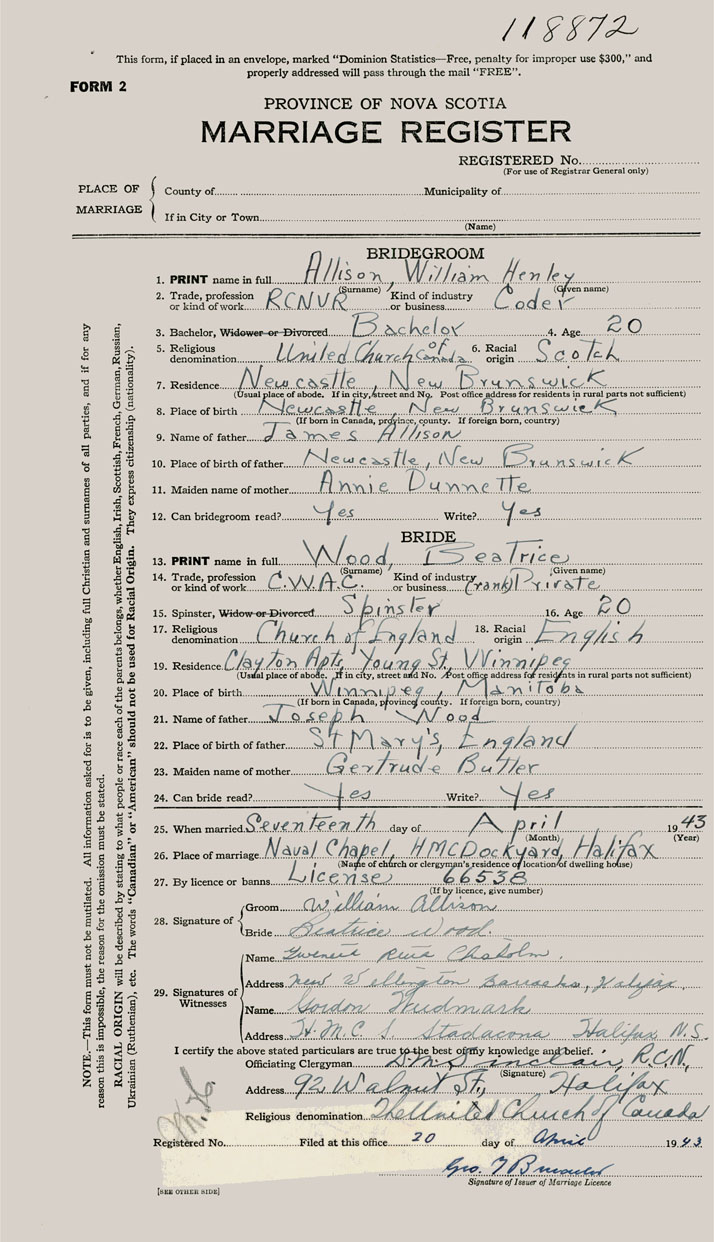 118872
This form, if placed in an envelope, marked "Dominion Statistics—Free, penalty for improper use $300," and
properly addressed will pass through the mail "FREE".
FORM 2
PROVINCE OF NOVA SCOTIA
MARRIAGE REGISTER
REGISTERED No.
(For use of Registrar General only)
PLACE OF MARRIAGE
County of Municipality of
If in City or Town
(Name)
BRIDEGROOM
1. PRINT name in full Allison, William Henley
(Surname) (Given name)
2. Trade, profession or kind of work RCNVR Kind of industry or business Coder
3. Bachelor, Widower or Divorced Bachelor 4. Age 20
5. Religious denomination United Church of Canada 6. Racial origin Scotch
7. Residence Newcastle, New Brunswick
(Usual place of abode. If in city, street and No. Post office address for residents in rural parts not sufficient)
8. Place of birth Newcastle, New Brunswick
(If born in Canada, province, county. If foreign born, country)
9. Name of father James Allison
10. Place of birth of father Newcastle, New Brunswick
11. Maiden name of mother Annie Dunnette
12. Can bridegroom read? Yes Write? Yes
BRIDE
13. PRINT name in full Wood, Beatrice
(Surname) (Given name)
14. Trade, profession or kind of work C.W.A.C. Kind of industry or business (rank) Private
15. Spinster, Widow or Divorced Spinster 16. Age 20
17. Religious denomination Church of England 18. Racial origin English
19. Residence Clayton Apts, Young St, Winnipeg
(Usual place of abode. If in city, street and No. Post office address for residents in rural parts not sufficient)
20. Place of birth Winnipeg, Manitoba
(If born in Canada, province, county. If foreign born, country)
21. Name of father Joseph Wood
22. Place of birth of father St Mary's, England
23. Maiden name of mother Gertrude Butler
24. Can bride read? Yes Write? Yes
25. When married Seventeenth day of April 1943
(Month) (Year)
26. Place of marriage Naval Chapel, HMC Dockyard, Halifax
(Name of church or clergyman's residence or location of dwelling house)
27. By licence or banns License 66538
(If by licence, give number)
28. Signature of
Groom William Allison
Bride Beatrice Wood.
29. Signatures of Witnesses
Name Chisholm.
Address New Wellington Barracks, Halifax
Name Gordon
Address H.M.C.S Stadacona Halifax N.S.
I certify the above stated particulars are true to the best of my knowledge and belief.
Officiating Clergyman Sinclair, R.C.N.
(Signature)
Address 92 Walnut St., Halifax
Religious denomination The United Church of Canada
Registered No. Filed at this office 20 day of April 1943
Geo.
Signature of Issuer of Marriage Licence
[SEE OTHER SIDE]
NOTE.—This form must not be mutilated. All information asked for is to be given, including full Christian and surnames of all parties, and if for any
reason this is impossible, the reason for the omission must be stated.
RACIAL ORIGIN will be described by stating to what people or race each of the parents belongs, whether English, Irish, Scottish, French, German, Russian,
Ukrainian (Ruthenian), etc. The words "Canadian" or "American" should not be used for Racial Origin. They express citizenship (nationality).